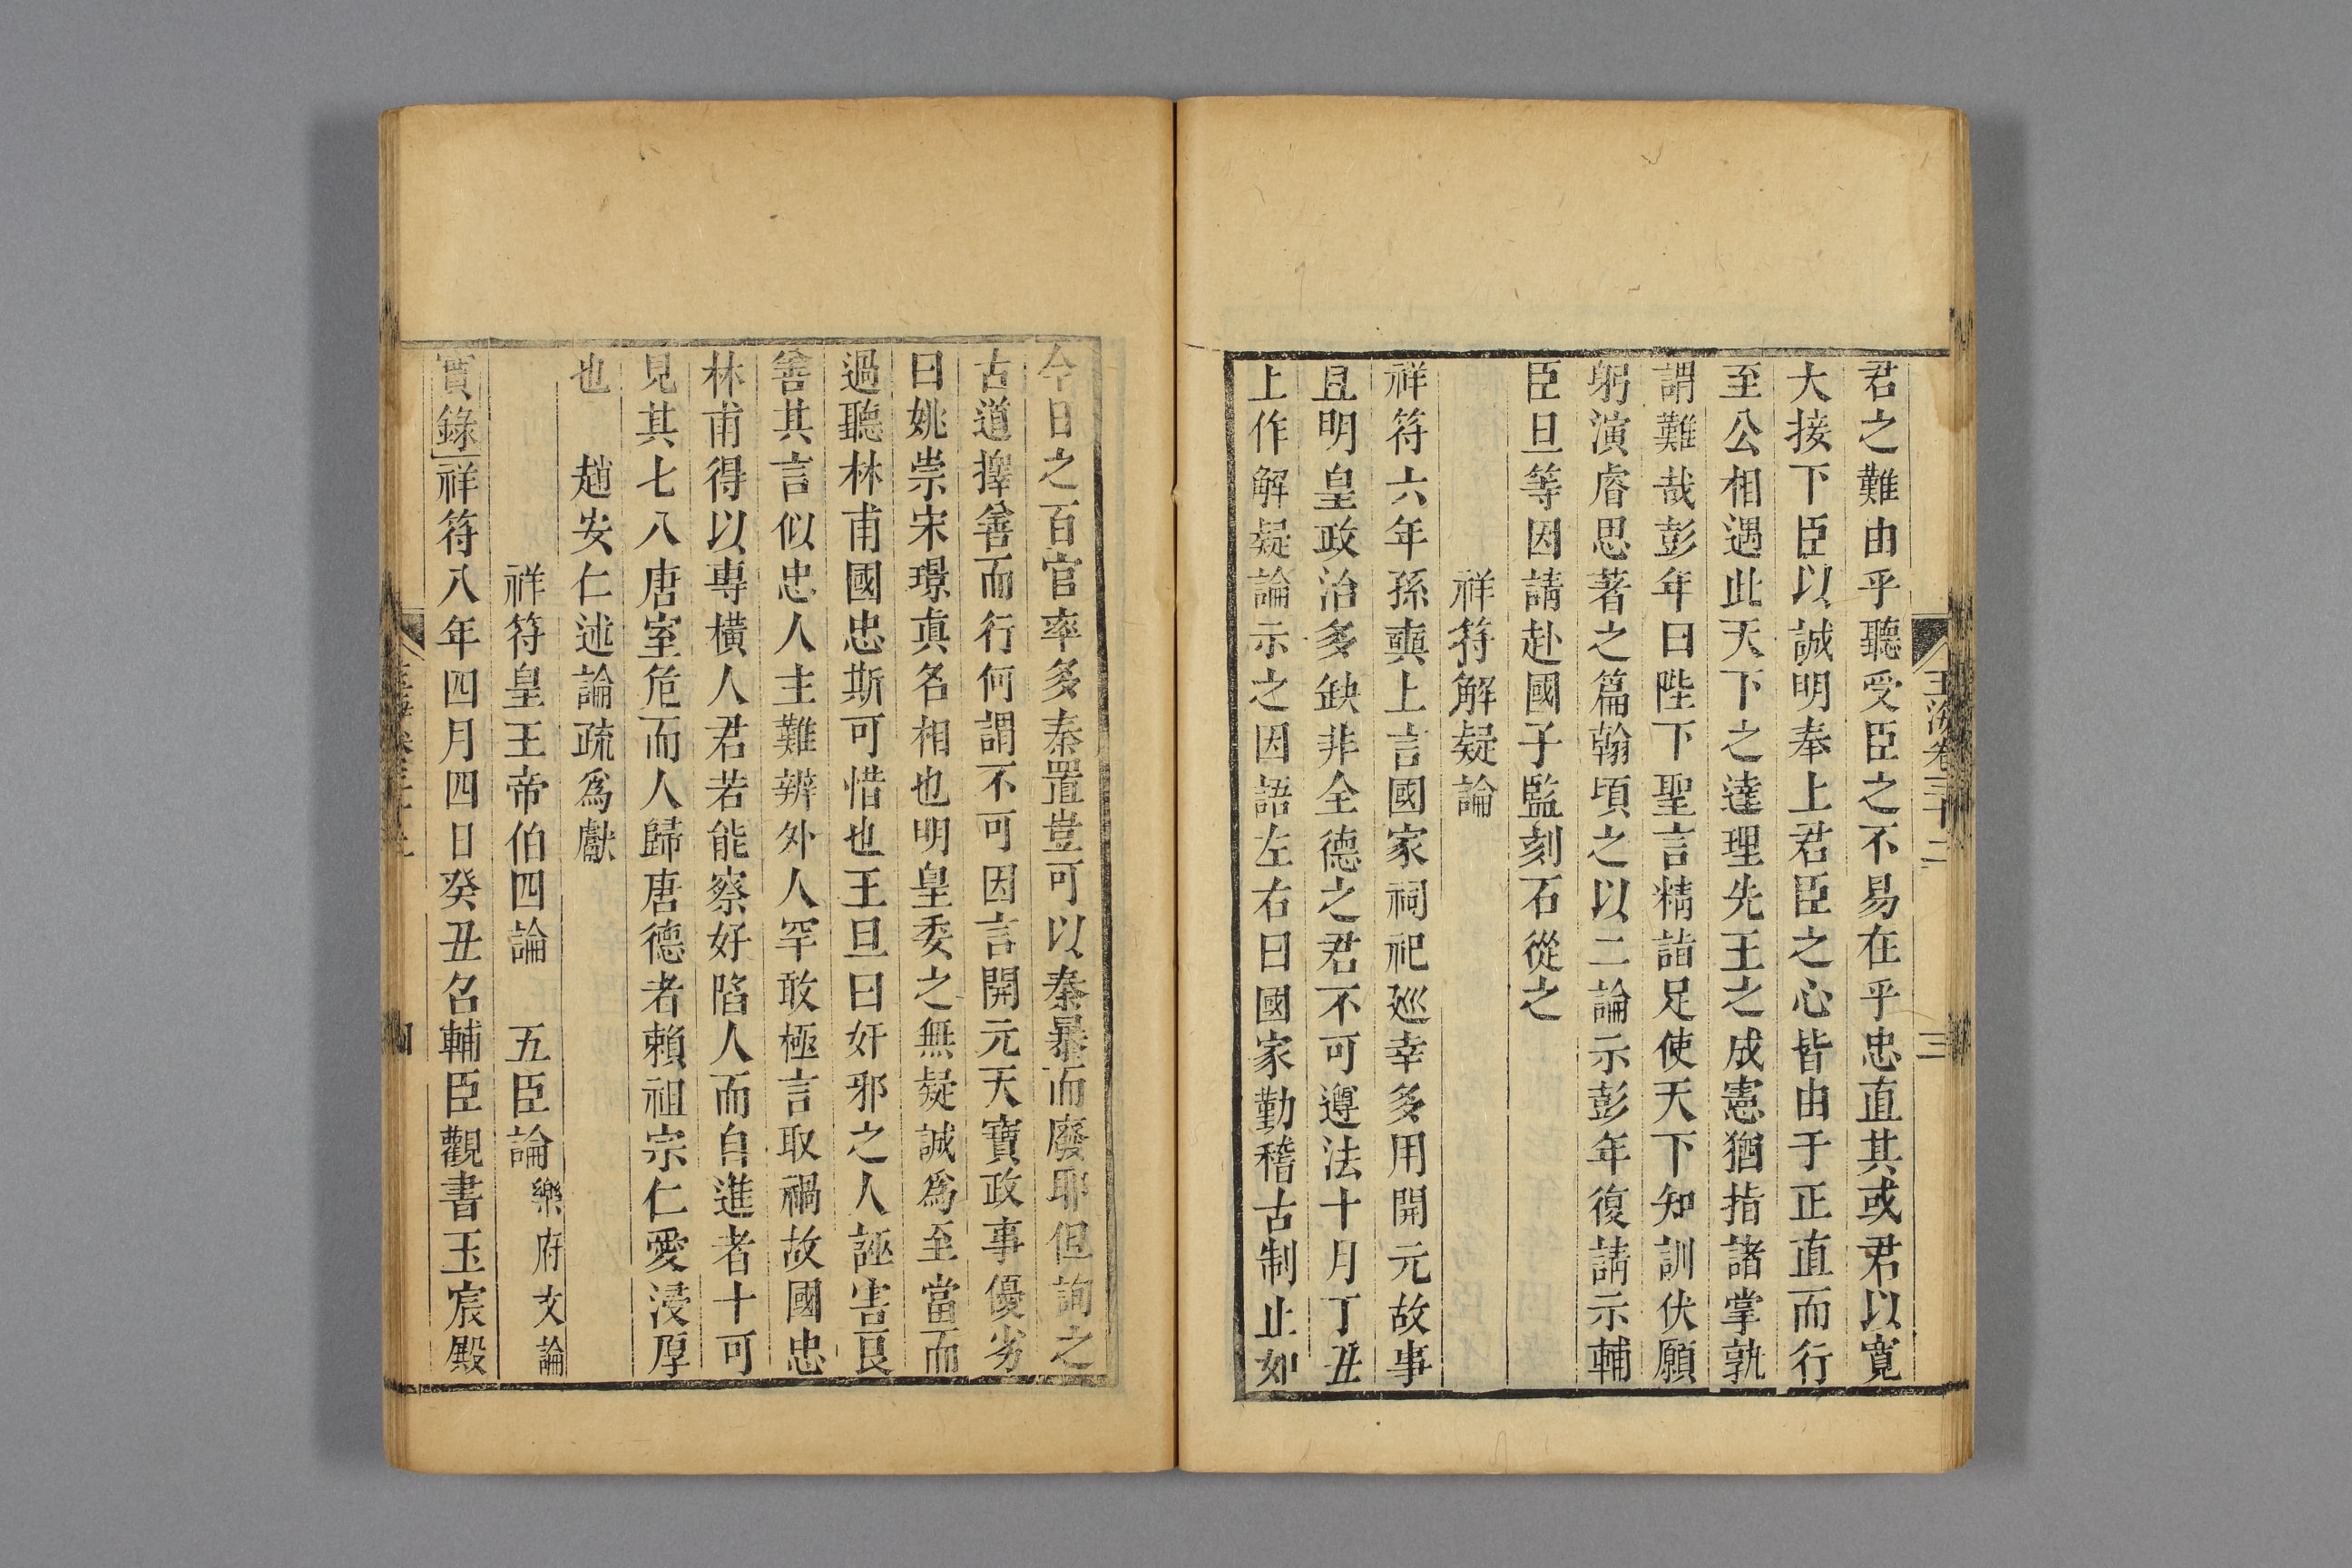 玉海卷三十二 三
君之難由乎聽受臣之不易在乎忠直其或君以寬
大接下臣以誠明奉上君臣之心皆由于正直而行
至公相遇此天下之達理先王之成憲猶指諸掌孰
謂難哉彭年曰陛下聖言精詣足使天下知訓伏願
躬演睿思著之篇翰頃之以二論示彭年復請示輔
臣旦等因請赴國子監刻石從之
祥符解疑論
祥符六年孫奭上言國家祠祀巡幸多用開元故事
且明皇政治多缺非全德之君不可遵法十月丁丑
上作解疑論示之因語左右曰國家勤稽古制止如
今日之百官率多秦置豈可以秦暴而廢耶但詢之
古道擇善而行何謂不可因言開元天寶政事優劣
曰姚崇宋璟真名相也明皇委之無疑誠爲至當而
過聽林甫國忠斯可惜也王旦曰奸邪之人誣害良
善其言似忠人主難辨外人罕敢極言取禍故國忠
林甫得以專橫人君若能察好陷人而自進者十可
見其七八唐室危而人歸唐德者賴祖宗仁愛浸厚
也 趙安仁述論疏爲獻
祥符皇王帝伯四論 五臣論 樂府文論
實錄祥符八年四月四日癸丑召輔臣觀書玉宸殿
四